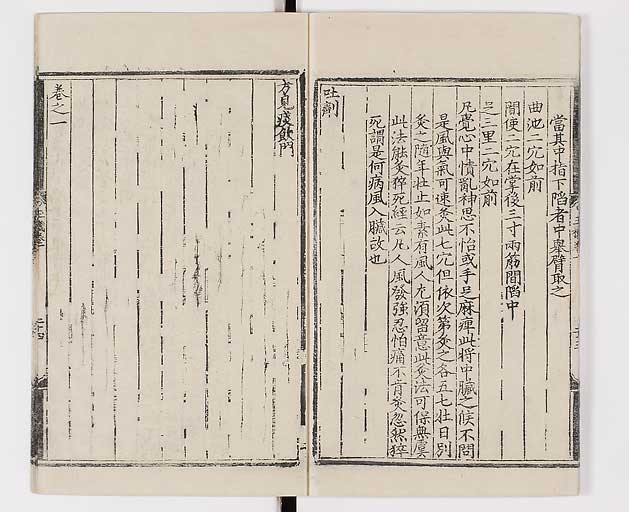 當其中指下陷者中舉臂取之
曲池二穴如前
間使二穴在掌後三寸兩筋間陷中
足三里二穴如前
凡覺心中憒亂神思不怡或手足麻痺此將中臟之候不問
是風與氣可速灸此七穴但依次第灸之各五七壯日別
灸之隨年壯止如素有風人尤須留意此灸法可保無虞
此法能灸猝死經云凡人風發強忍怕痛不肯灸忽然猝
死謂是何病風入臟故也
吐劑
方見痰飲門
卷之一